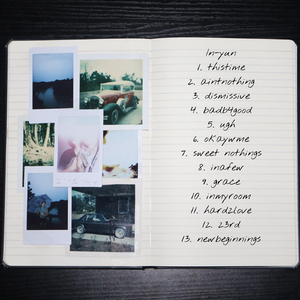 In-yun
1. thistime
2. aintnothing
3. dismissive
4. badb4good
5. ugh
6. okaywme
7. sweet nothings
8. inafew
9. grace
10. inmyroom
11. hard2love
12. 23rd
13. newbeginnings